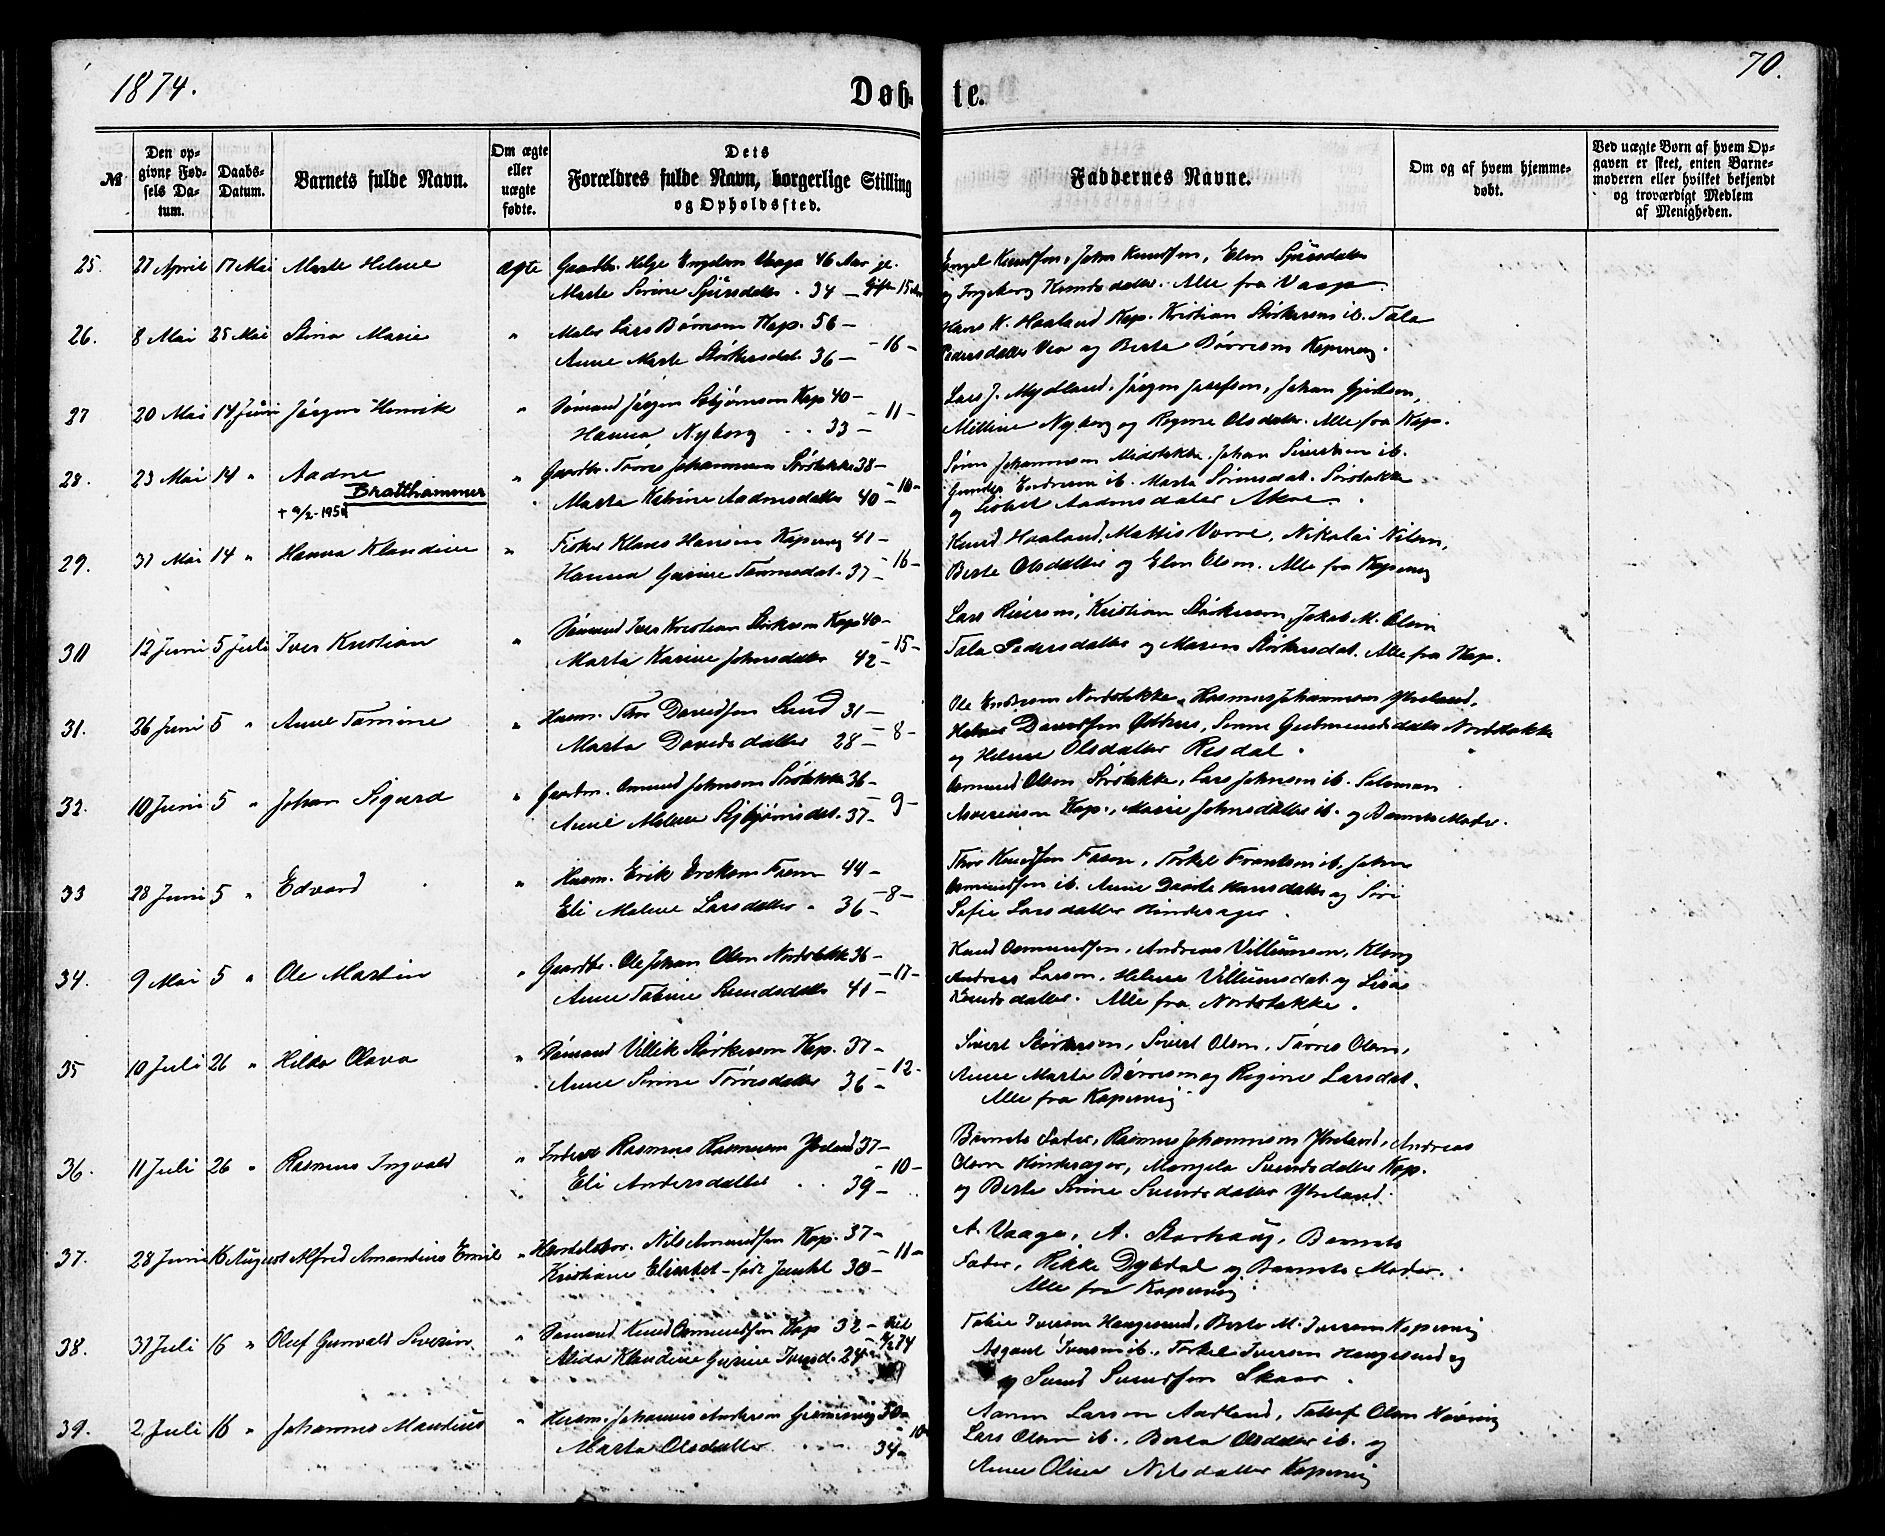 1874.
Døb-
te.
70.
№
Den opgivne Fødsels Datum.
Daabs-Datum.
Barnets fulde Navn.
Om ægte eller uægte fødte.
Dets Forældres fulde Navn, borgerlige Stilling og Opholdssted.
Faddernes Navne.
Om og af hvem hjemmedøbt.
Ved uægte Børn af hvem Opgaven er skeet, enten Barnemoderen eller hvilket bekjendt og troværdigt Medlem af Menigheden.
25. 27 April 17 Mai Marte Helene ægte Gaardbr. Helge Engelsen Vaaga 46 Aar gl.
Marte Serine Sjursdatter. 34 – Gift 15 Aar
Engel Knudsen, John Knudsen, Elen Sjursdatter
og Ingeborg Knudsdatter. Alle fra Vaaga
26. 8 Mai 25 Mai Stina Marie " Maler Lars Børresen Kop. 56 –
Anne Marte Størkersdat. 36 – – 16 –
Hans K. Haaland Kop. Kristian Størkersen ib. Tala
Pedersdatter Vea og Berte Børresen Kopervig.
27 20 Mai 14 Juni Jørgen Henrik " Sømand Jørgen Esbjørnsen Kop 40 –
Hanna Nyborg . . 33 – – 11 –
Lars J. Mydland. Jørgen Josefsen, Johan
Milline Nyborg og Regine Olsdatter. Alle fra Kop.
28. 23 Mai 14 " Aadne " Gaardbr. Tørres Johannesen Sørstokke 38 –
Bratthammer
† 9/2-1954
Marta Katrine Aadnesdatter 40 – – 10 –
Søren Johannesen Midstokke. Johan Sivertsen ib.
Endresen ib. Marta Sørensdat. Sørstokke
og Aadnesdatter
29. 31 Mai 14 " Hanna Klaudine " Fisker Klaus Hansen Kopervig 41 –
Hanna Gurine Tønnesdat. 37 – – 16 –
Knud Haaland, Mattis Vorre, Nikolai Nilsen,
Berte Olsdatter og Elen Olsen. Alle fra Kopervig
30 12 Juni 5 Juli Iver Kristian " Sømand Iver Kristian Størkersen Kop 40 –
Marta Karine Johnsdatter 42 – – 15 –
Lars Kristian Størkersen, Jakob M. Olsen
Tala Pedersdatter og Maren Størkersdat. Alle fra Kop.
31. 26 Juni 5 " Anne Tomine " Husm. Thor Davidsen Lund 31 –
Marta Davidsdatter 28 – – 8 –
Ole Endresen Nordstokke, Rasmus Johannesen Ytreland,
Davidsen Serine Gudmundsdatter Nordstokke
og Helene Olsdatter Risdal.
32. 10 Juni 5 " Johan Sigurd " Gaardm. Osmund Johnsen Sørstokke 36 –
Anne Malene Esbjørnsdat. 37 – – 9 –
Osmund Olsen Sørstokke, Lars Johnsen ib. Salomon
Kop., Marie Johnsdatter ib. og Barnets Moder.
33 28 Juni 5 " Edvard " Husm. Erik Eriksen Fosen 44 –
Eli Malene Larsdatter. 36 – – 8 –
Thor Knudsen Fosen, Torkel ib. John
Osmundsen ib. Anne Dorte Hansdatter og Siri
Sofie Larsdatter Hinderager.
34. 9 Mai 5 " Ole Martin " Gaardbr. Ole Johan Olsen Nordstokke 36 –
Anne Tabine Svendsdatter 41 – – 17 –
Knud Osmundsen, Andreas Villumsen,
Andreas Larsen, Helene Villumsdat. og
Knudsdatter. Alle fra Nordstokke.
35 10 Juli 26 " Hilda Olava " Sømand Villik Størkersen Kop. 37 –
Anne Serine Tørresdatter 36 – – 12 –
Sivert Størkersen, Sivert Olsen, Tørres Olsen,
Anne Marta Børresen og Regine Larsdat.
Alle fra Kopervig
36. 11 Juli 26 " Rasmus Ingvald " Inderst Rasmus Rasmussen Ytreland 37 –
Eli Andersdatter . . 39 – – 10 –
Barnets Fader, Rasmus Johannesen Ytreland, Andreas
Olsen Hinderager, Mangela Svendsdatter Kop.
og Berte Serine Svendsdatter Ytreland.
37. 28 Juni 16 August Alfred Amandius Emil " Handelsbor. Nils Amundsen Kop. 37 –
Kristiane Elisabet – født 30 – – 11 –
A. Vaage, A. Storhaug, Barnets
Fader, Rikke Dybdal og Barnets Moder.
Alle fra Kopervig
38. 31 Juli 16 " Oluf Gunvald Severin " Sømand Knud Osmundsen Kop 32 –
Alida Klaudine Gurine Iversd. 24 –
Tobie Iversen Haugesund, Berte M. Iversen Kopervig
Asgaut Iversen ib., Torkel Iversen Haugesund og
og Svend Svendsen Skaar.
39. 2 Juli 16 " Johannes Mandius " Husm. Johannes Andersen 50 –
Marta Olsdatter . . 34 – – 10 –
Aanen Larsen Aadland, Tollef Olsen
Lars Olsen ib., Berta Olsdatter ib. og
Anne Oline Nilsdatter Kopervig